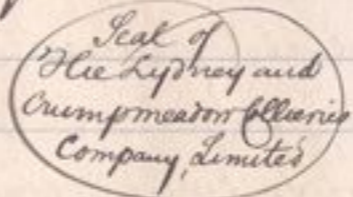 Seal of
The Lydney and
Crumpmeadow Collieries
Company, Limited